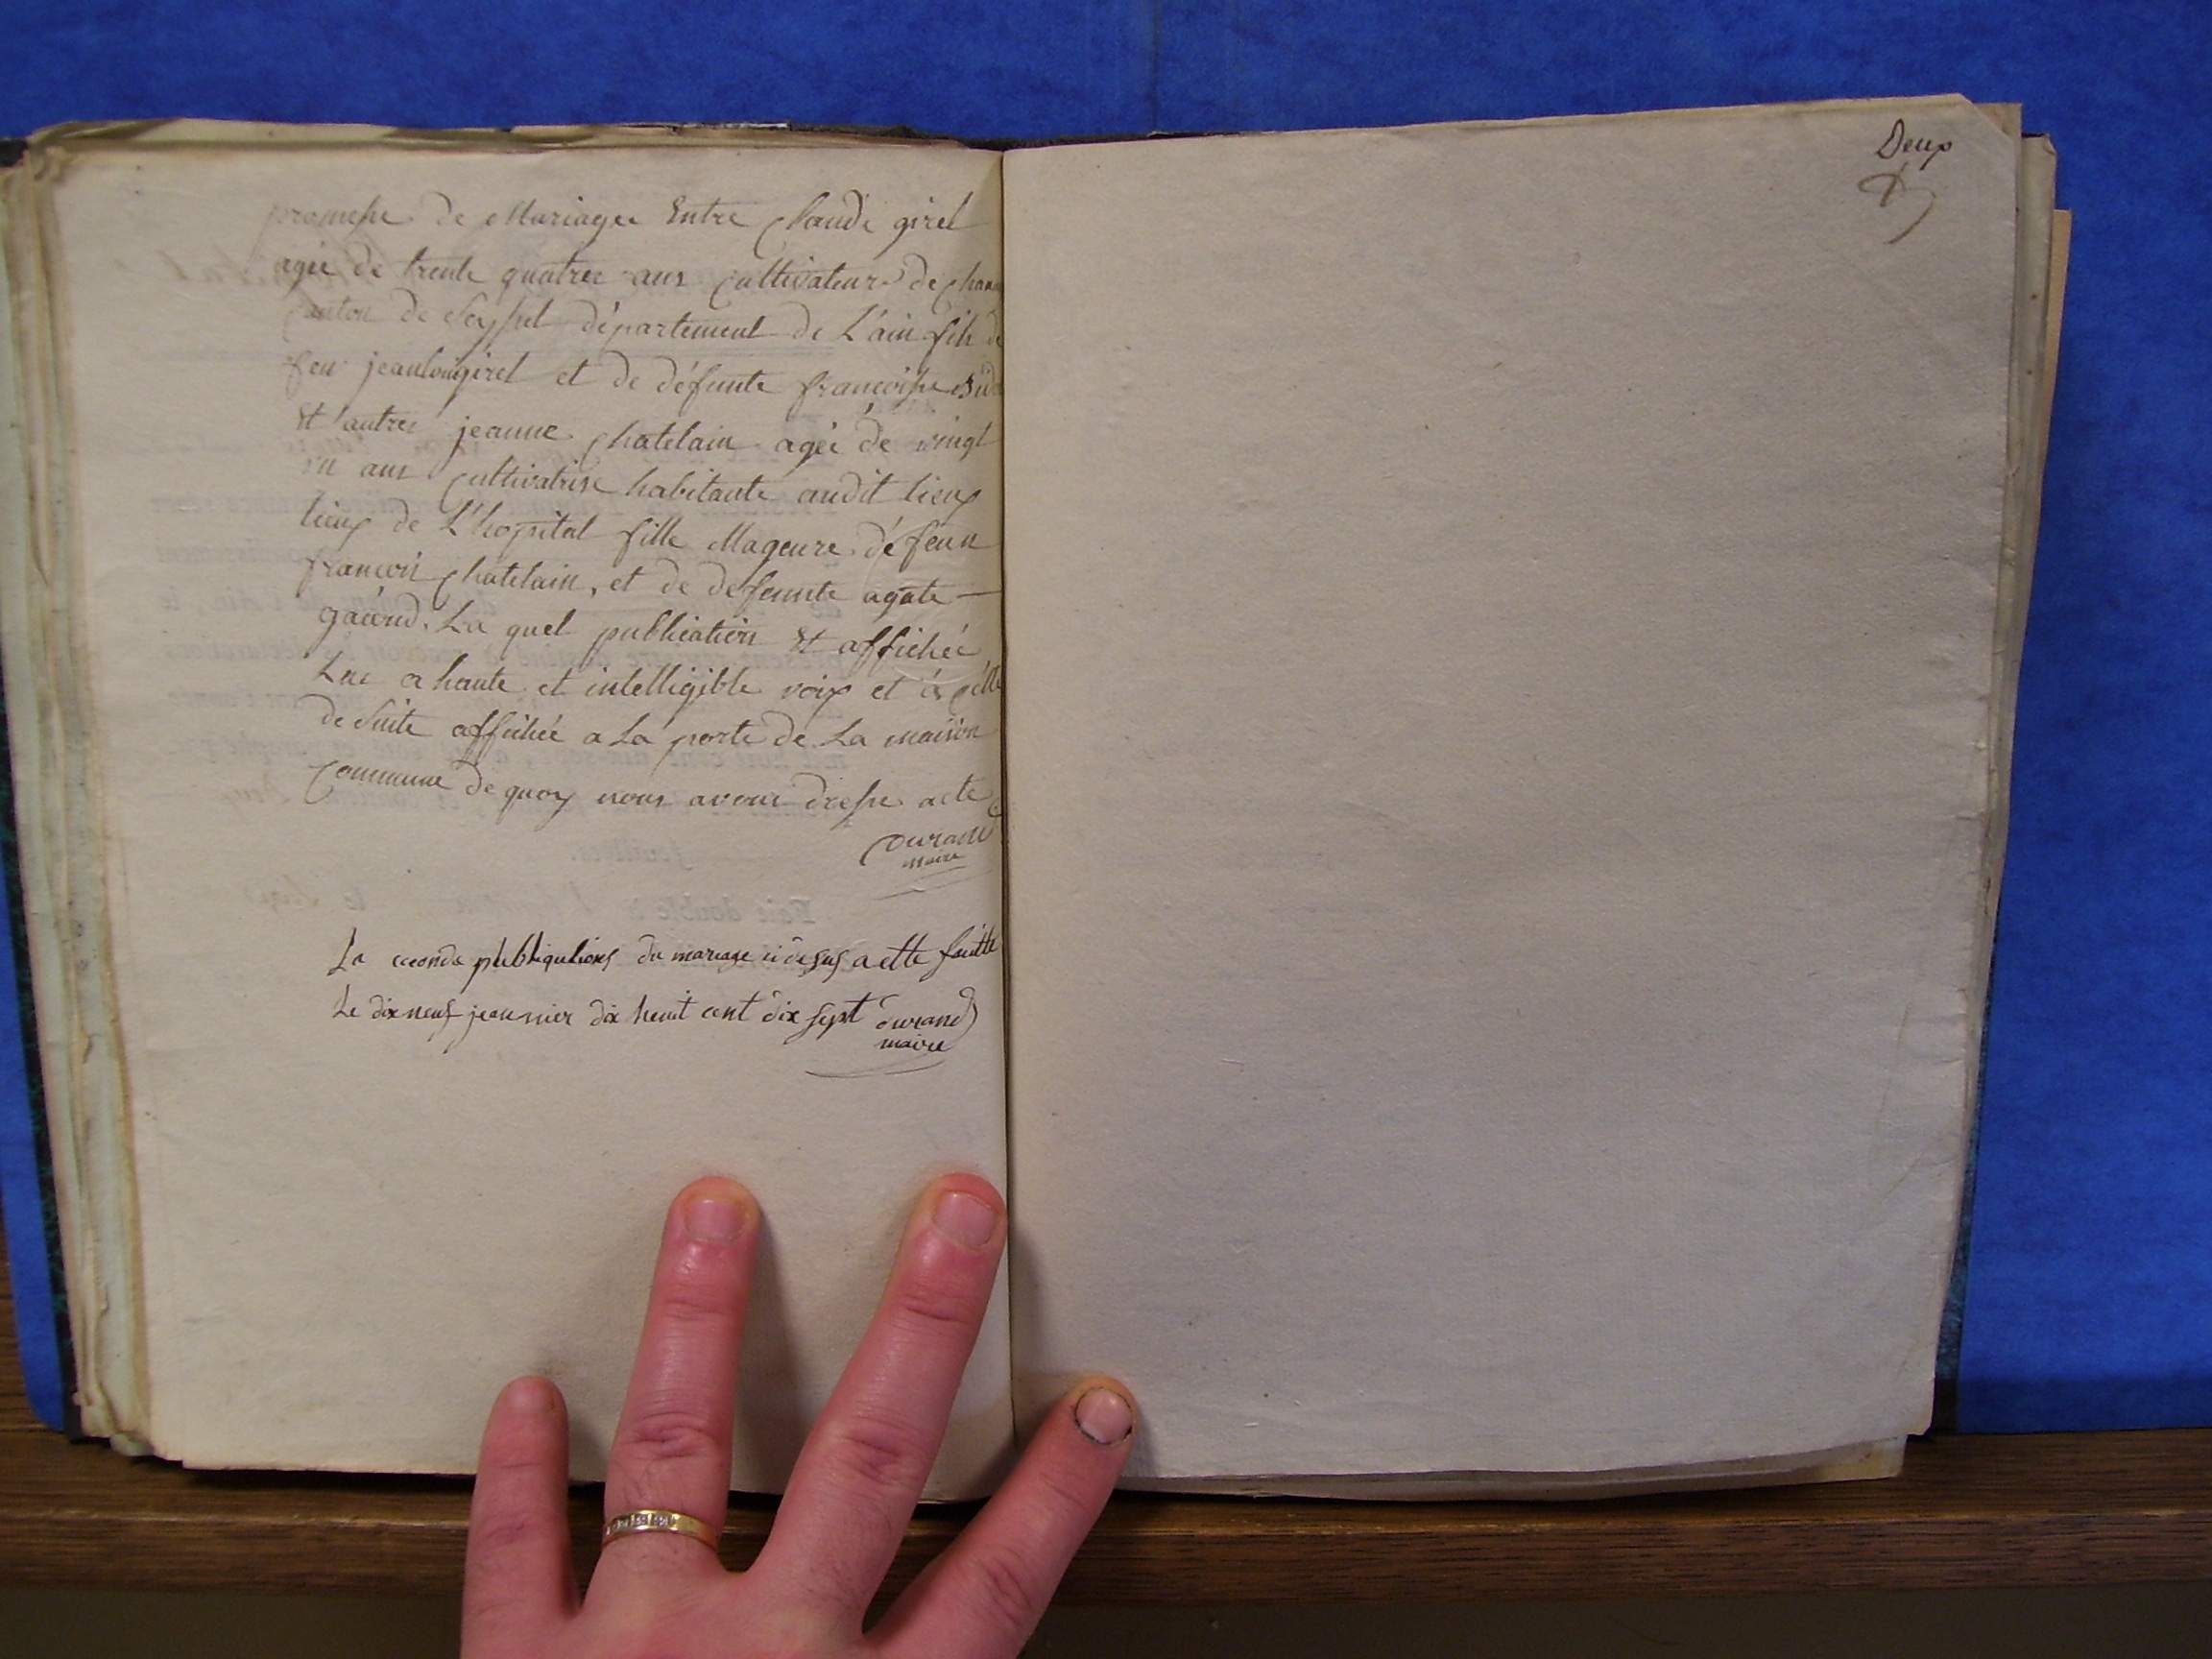 promesse de Mariagee Entre Claude girel
agée de trente quatree ans Cultivateur de
Canton de Seyssel département de L'ain fils de
feu jeanlouigirel et de défunte francoisse
Et l'autree jeanne Chatelain agée de vingt
un ans Cultivatrise habitante audit lieux
lieux de L'hopital fille Mageure dé feun
francois Chatelain, et de defunte agate —
. La quel publication Et affichée
Lue a haute et intelligible voix et
de Suite affichée a La porte de La maison
Commune de quoy nous avons dresse acte
Durand
maire
La ceconde publiquations du mariage si desus a ette faitte
Le dix neuf jeanvier dix heuit cent dix sept durand
maire
Deux